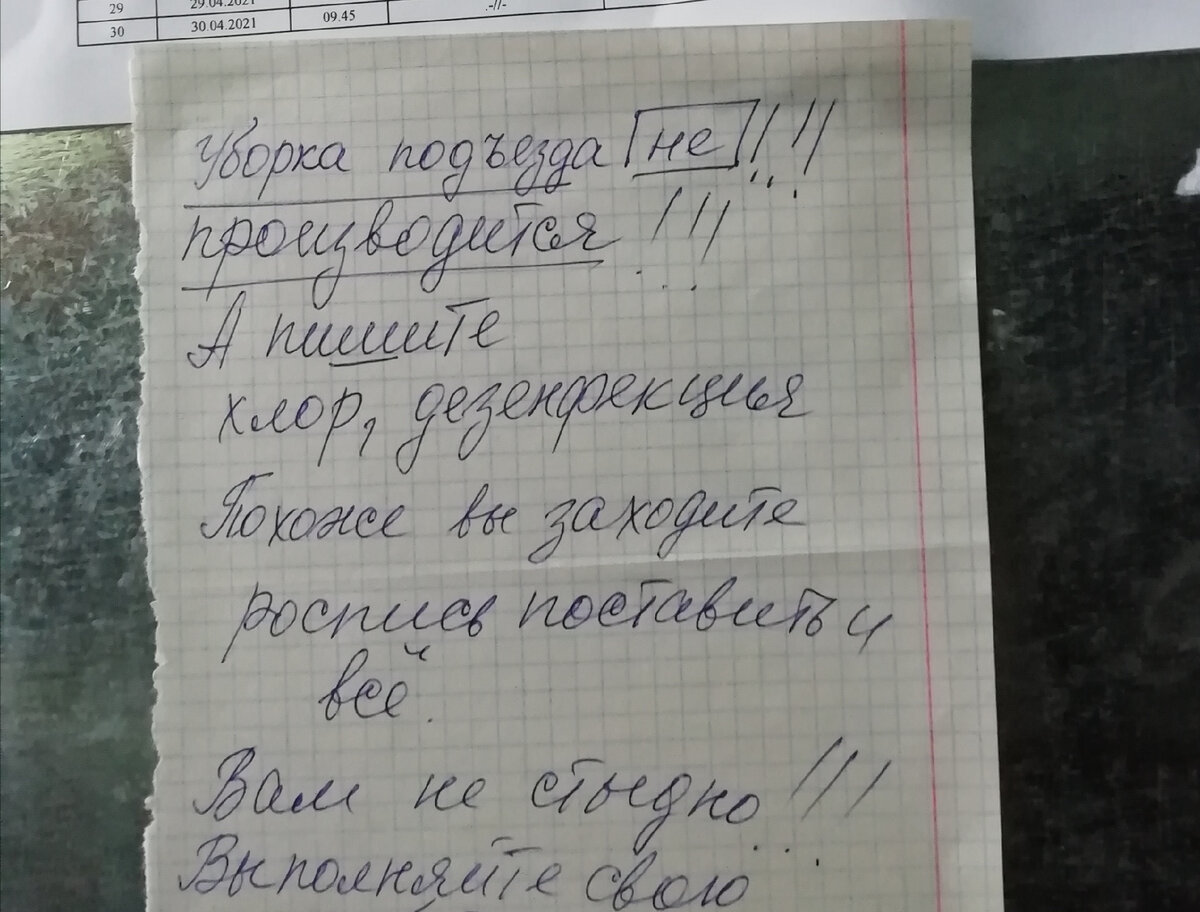 29 29.04.2021
30 30.04.2021 09.45 .-//-
Уборка подъезда не!!!
производится!!!
А пишите
хлор, дезенфекция
Похоже вы заходите
роспись поставить и
всё.
Вам не стыдно!!!
Выполняйте свою